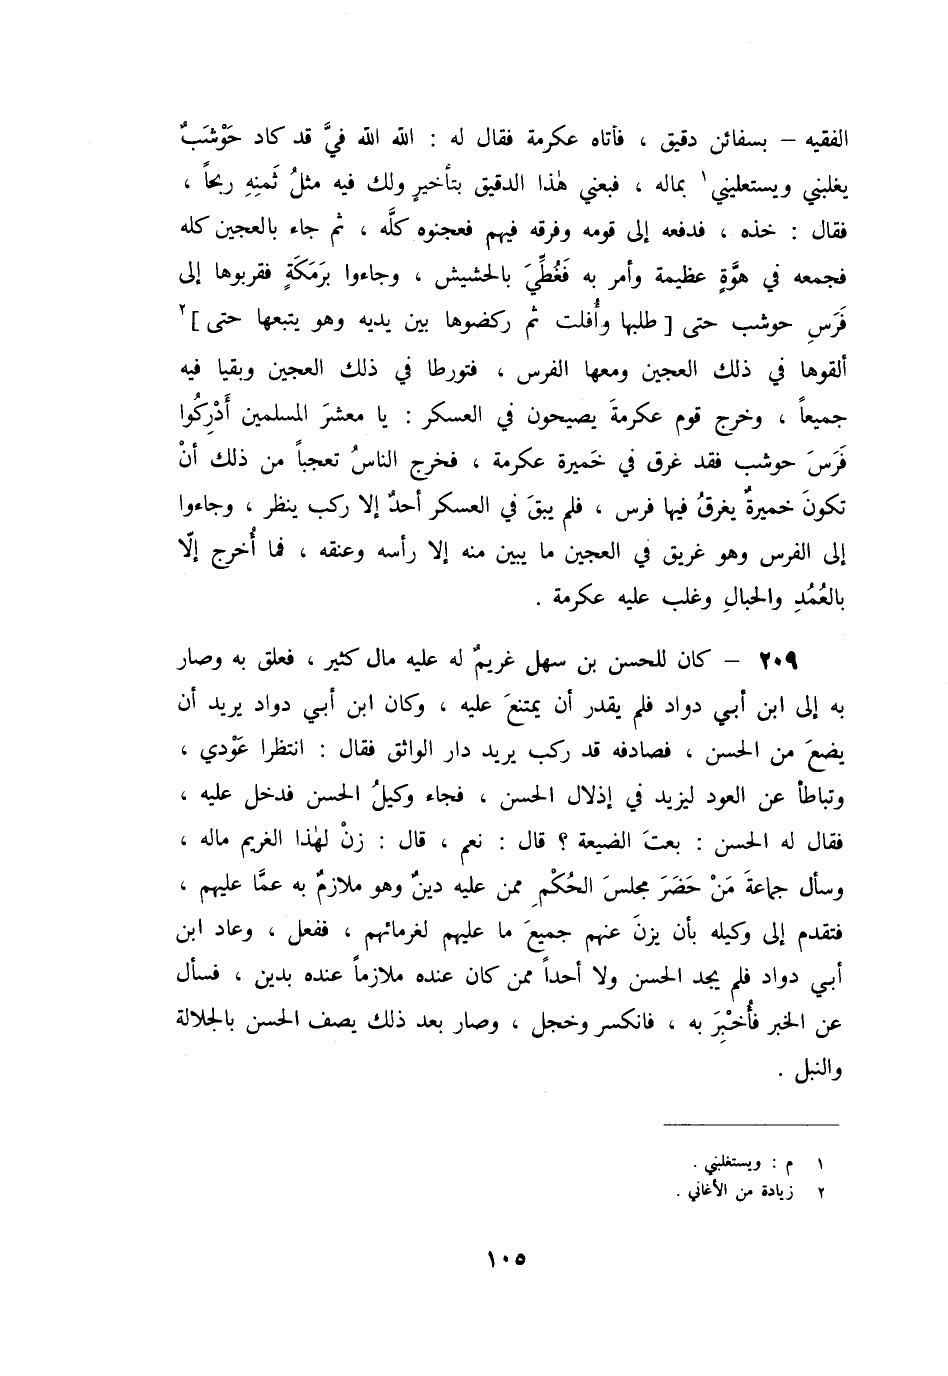 الفقيه – بسفائن دقيق ، فأتاه عكرمة فقال له : الله الله فيَّ قد كاد حَوْشَبٌ
يغلبني ويستعليني١ بماله ، فبعني هٰذا الدقيق بتأخيرٍ ولك فيه مثلُ ثَمنِهِ ربحاً ،
فقال : خذه ، فدفعه إلى قومه وفرقه فيهم فعجنوه كلَّه ، ثم جاء بالعجين كله
فجمعه في هوَّةٍ عظيمة وأمر به فَغُطِّيَ بالحشيش ، وجاءوا برَمَكَةٍ فقربوها إلى
فَرَسِ حوشب حتى [ طلبها وأُفلت ثم ركضوها بين يديه وهو يتبعها حتى ]٢
ألقوها في ذلك العجين ومعها الفرس ، فتورطا في ذلك العجين وبقيا فيه
جميعاً ، وخرج قوم عكرمةَ يصيحون في العسكر : يا معشرَ المسلمين أَدْرِكُوا
فَرَسَ حوشب فقد غرق في خَميرة عكرمة ، فخرج الناسُ تعجباً من ذلك أنْ
تكونَ خميرةٌ يغرقُ فيها فرس ، فلم يبقَ في العسكر أحدٌ إلا ركب ينظر ، وجاءوا
إلى الفرس وهو غريق في العجين ما يبين منه إلا رأسه وعنقه ، فما أُخرج إلّا
بالعُمُدِ والحبالِ وغلب عليه عكرمة .
٢٠٩ – كان للحسن بن سهل غريمٌ له عليه مال كثير ، فعلق به وصار
به إلى ابن أبي دواد فلم يقدر أن يمتنعَ عليه ، وكان ابن أبي دواد يريد أن
يضعَ من الحسن ، فصادفه قد ركب يريد دار الواثق فقال : انتظرا عَوْدي ،
وتباطأ عن العود ليزيد في إذلال الحسن ، فجاء وكيلُ الحسن فدخل عليه ،
فقال له الحسن : بعتَ الضيعة ؟ قال : نعم ، قال : زنْ لهٰذا الغريم ماله ،
وسأل جماعةَ مَنْ حَضَرَ مجلسَ الحُكْمِ ممن عليه دينٌ وهو ملازمٌ به عمَّا عليهم ،
فتقدم إلى وكيله بأن يزنَ عنهم جميعَ ما عليهم لغرمائهم ، ففعل ، وعاد ابن
أبي دواد فلم يجد الحسن ولا أحداً ممن كان عنده ملازماً عنده بدين ، فسأل
عن الخبر فأُخْبِرَ به ، فانكسر وخجل ، وصار بعد ذلك يصف الحسن بالجلالة
والنبل .
١ م : ويستغلبني .
٢ زيادة من الأغاني .
١٠٥